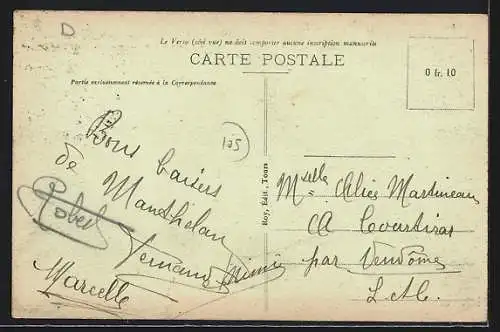 D
Le Verso (côté vue) ne doit comporter aucune inscription manuscrite
CARTE POSTALE
Partie exclusivement réservée à la Correspondance
0 fr. 10
105
Bons baisers
de Manthelan
Robert
Fernand Mimi
Marcelle
Roy, Edit., Tours
Mselle Alice Martineau
A Courtiras
par Vendôme
L. &. C.